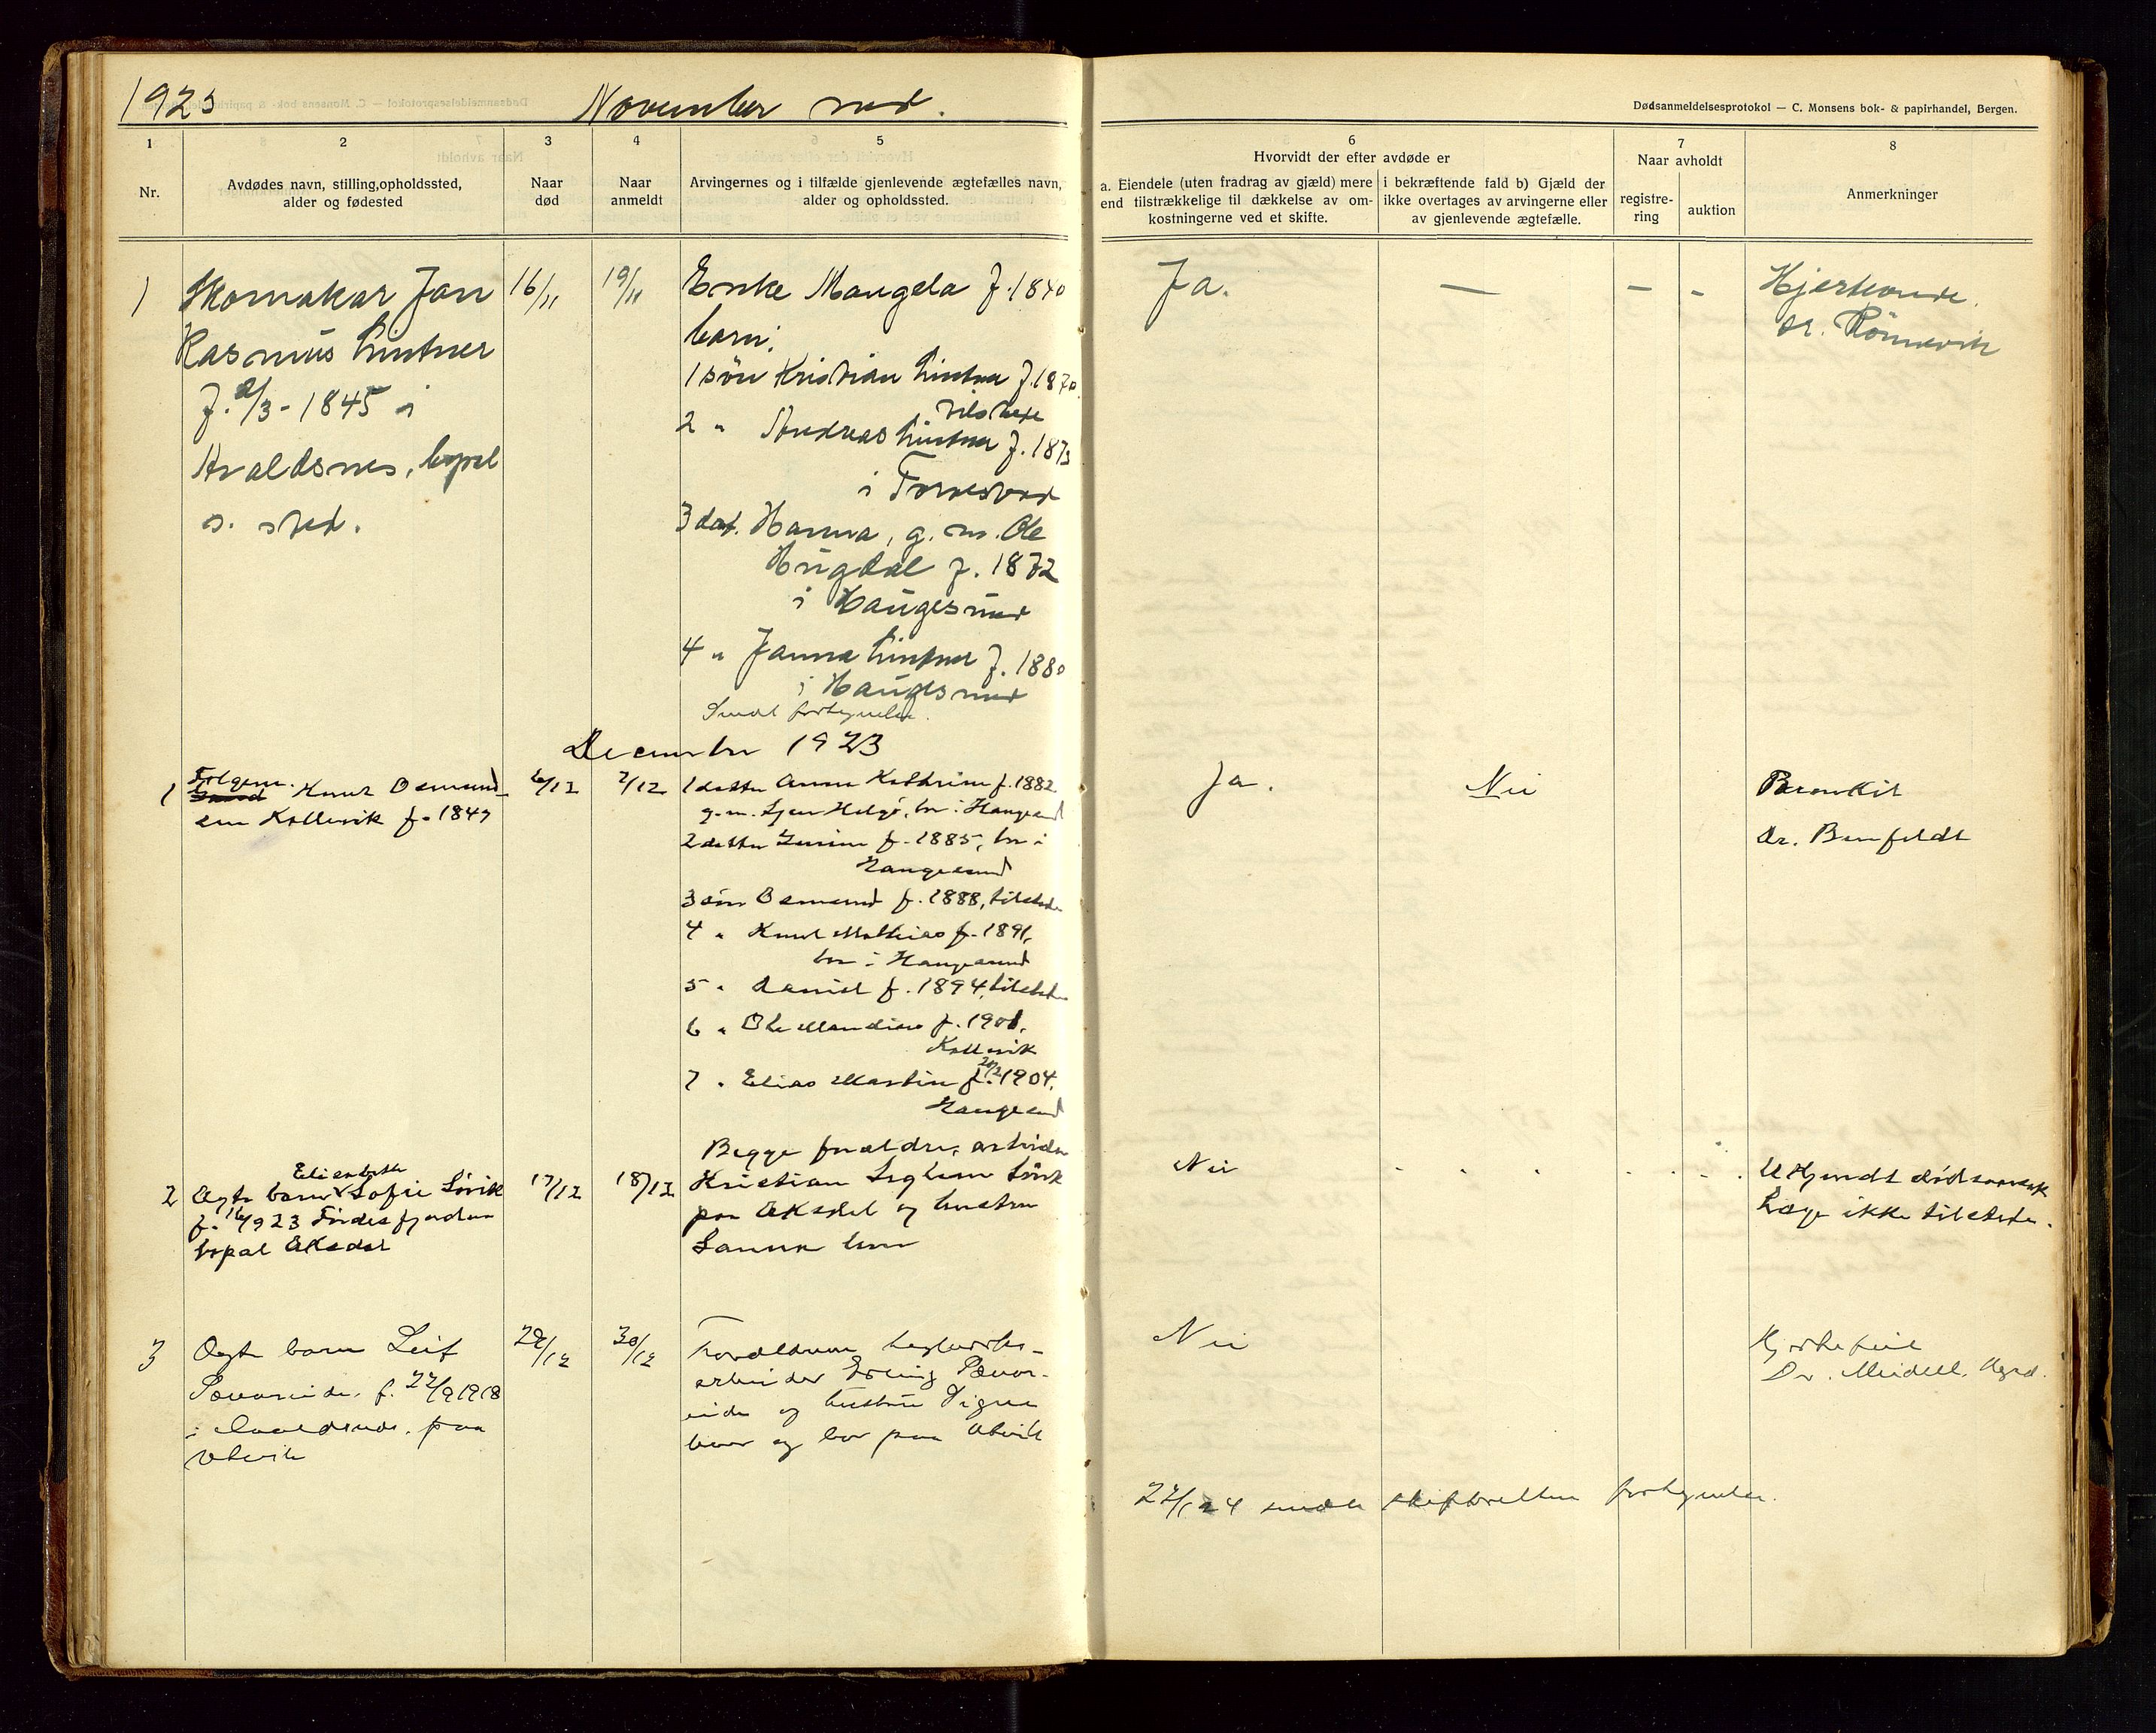 1923 November md.
Dødsanmeldelsesprotokol — C. Monsens bok- & papirhandel, Bergen.
1 2 3 4 5 6 7 8
Nr.
Avdødes navn, stilling, opholdssted,
alder og fødested
Naar
død
Naar
anmeldt
Arvingernes og i tilfælde gjenlevende ægtefælles navn,
alder og opholdssted.
Hvorvidt der efter avdøde er
a. Eiendele (uten fradrag av gjæld) mere
end tilstrækkelige til dækkelse av om-
kostningerne ved et skifte.
i bekræftende fald b) Gjæld der
ikke overtages av arvingerne eller
av gjenlevende ægtefælle.
Naar avholdt
registre-
ring
auktion
Anmerkninger
1
Skomakar Jan
Rasmus Lintner
f. 2/3 - 1845 i
Avaldsnes, bopæl
s. sted.
16/11
19/11
Enke Maugela f. 1840
barn:
1 søn Kristian Lintner f. 1870
tilstede
2 " Andreas Lintner f. 1873
i Torvestad
3 dat. Hanna, g. m. Ole
Hugdal f. 1872
i Haugesund
4 " Janna Lintner f. 1880
i Haugesund
Sendt fortegnelse.
Ja. — - -
Hjerteonde.
Dr. Rönnevik
December 1923
1
Folgem. Knut Osmund-
sen Kollevik f. 1847
6/12
7/12
1 datter Anna Kathrine f. 1882
g. m. Sjen Helgø, bor i Haugesund
2 datter Serine f. 1885, bor i
Haugesund
3 søn Osmund f. 1888, tilstede
4 " Knut Mathias f. 1891,
bor i Haugesund
5 " Daniel f. 1894, tilstede
6 " Ole Mandius f. 1901,
Kollevik
7 " Elias Martin f. 20/2 1904,
Haugesund
Ja.
Nei
Bronkit
Dr. Benfeldt
2
Elisabeth
Ægte barn Sofie Sörvik
f. 1923 Fördesfjorden
bopæl Aksdal
17/12
18/12
Begge forældre, arbeider
Kristian Sørvik
paa Aksdal og hustru
Sanna
Nei
Ukjendt dødsaarsak
Læge ikke tilstede.
3
Ægte barn Leif
Sævereide, f. 22/9 1918
i Avaldsnes, paa
Utvik
29/12
30/12
Forældrene
arbeider Erling Sæver-
eide og hustru Signe
bor paa Utvik
Nei
Hjertefeil
Dr. Meidell, Kopervik.
22/1 24 sendt skifteretten fortegnelse.